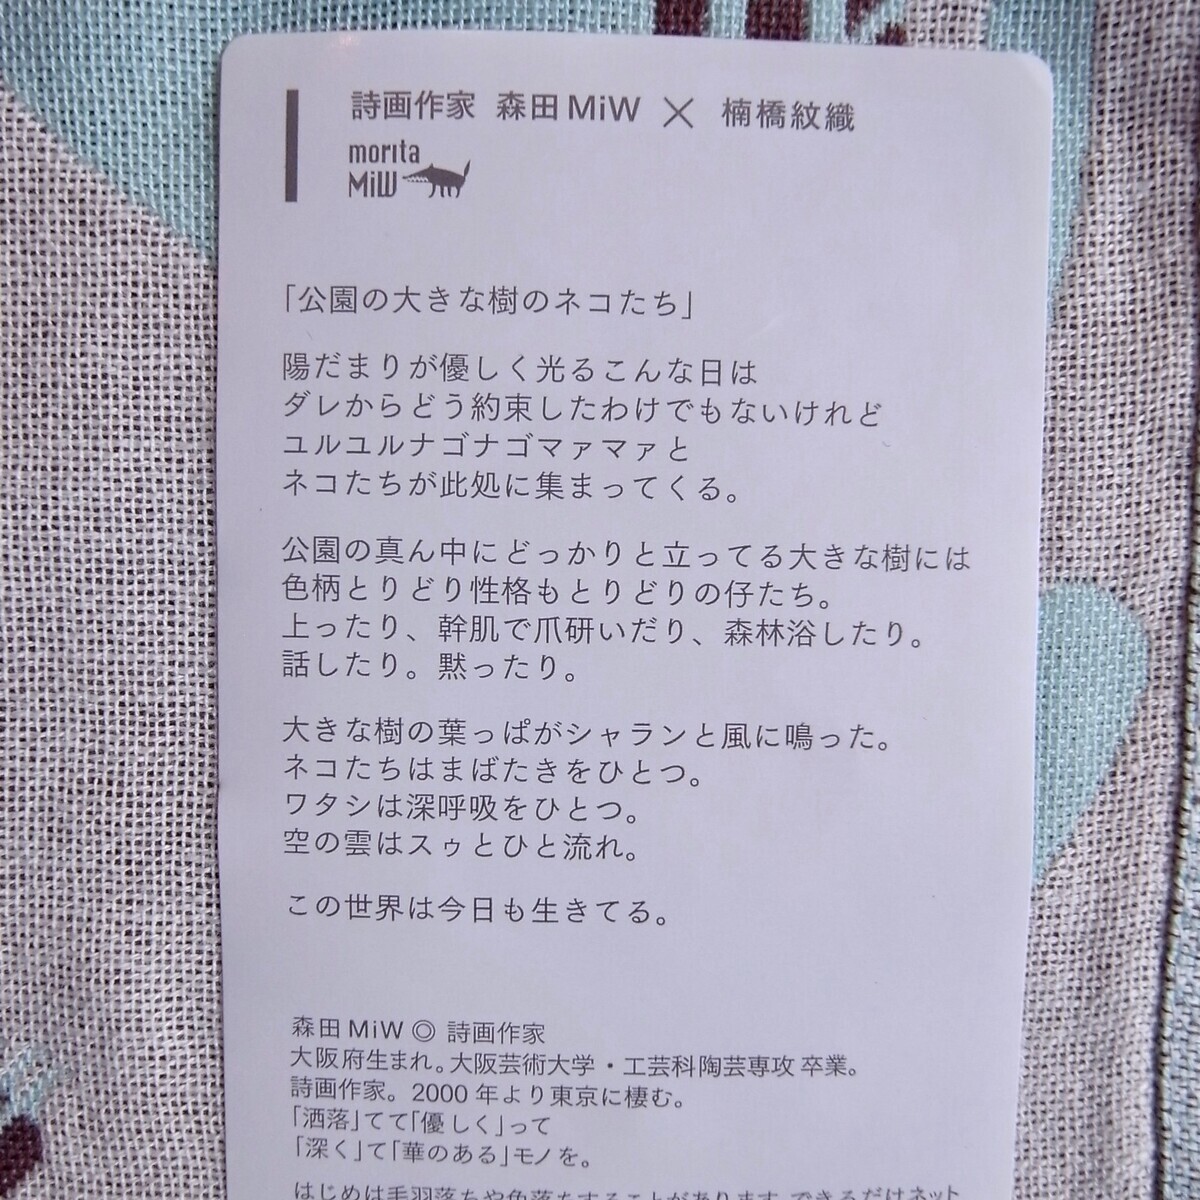 詩画作家 森田MiW × 楠橋紋織
morita
MiW
「公園の大きな樹のネコたち」
陽だまりが優しく光るこんな日は
ダレからどう約束したわけでもないけれど
ユルユルナゴナゴマァマァと
ネコたちが此処に集まってくる。
公園の真ん中にどっかりと立ってる大きな樹には
色柄とりどり性格もとりどりの仔たち。
上ったり、幹肌で爪研いだり、森林浴したり。
話したり。黙ったり。
大きな樹の葉っぱがシャランと風に鳴った。
ネコたちはまばたきをひとつ。
ワタシは深呼吸をひとつ。
空の雲はスゥとひと流れ。
この世界は今日も生きてる。
森田MiW◎ 詩画作家
大阪府生まれ。大阪芸術大学・工芸科陶芸専攻 卒業。
詩画作家。2000年より東京に棲む。
「洒落」てて「優しく」って
「深く」て「華のある」モノを。
はじめは毛羽落ちや色落ちすることがあります。できるだけネット